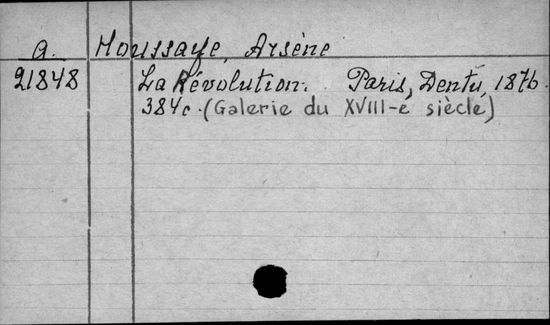 a. Houssaye, Arsène
21848 La Révolution. Paris, Dentu, 1876.
384c. (Galerie du XVIII-e siècle)